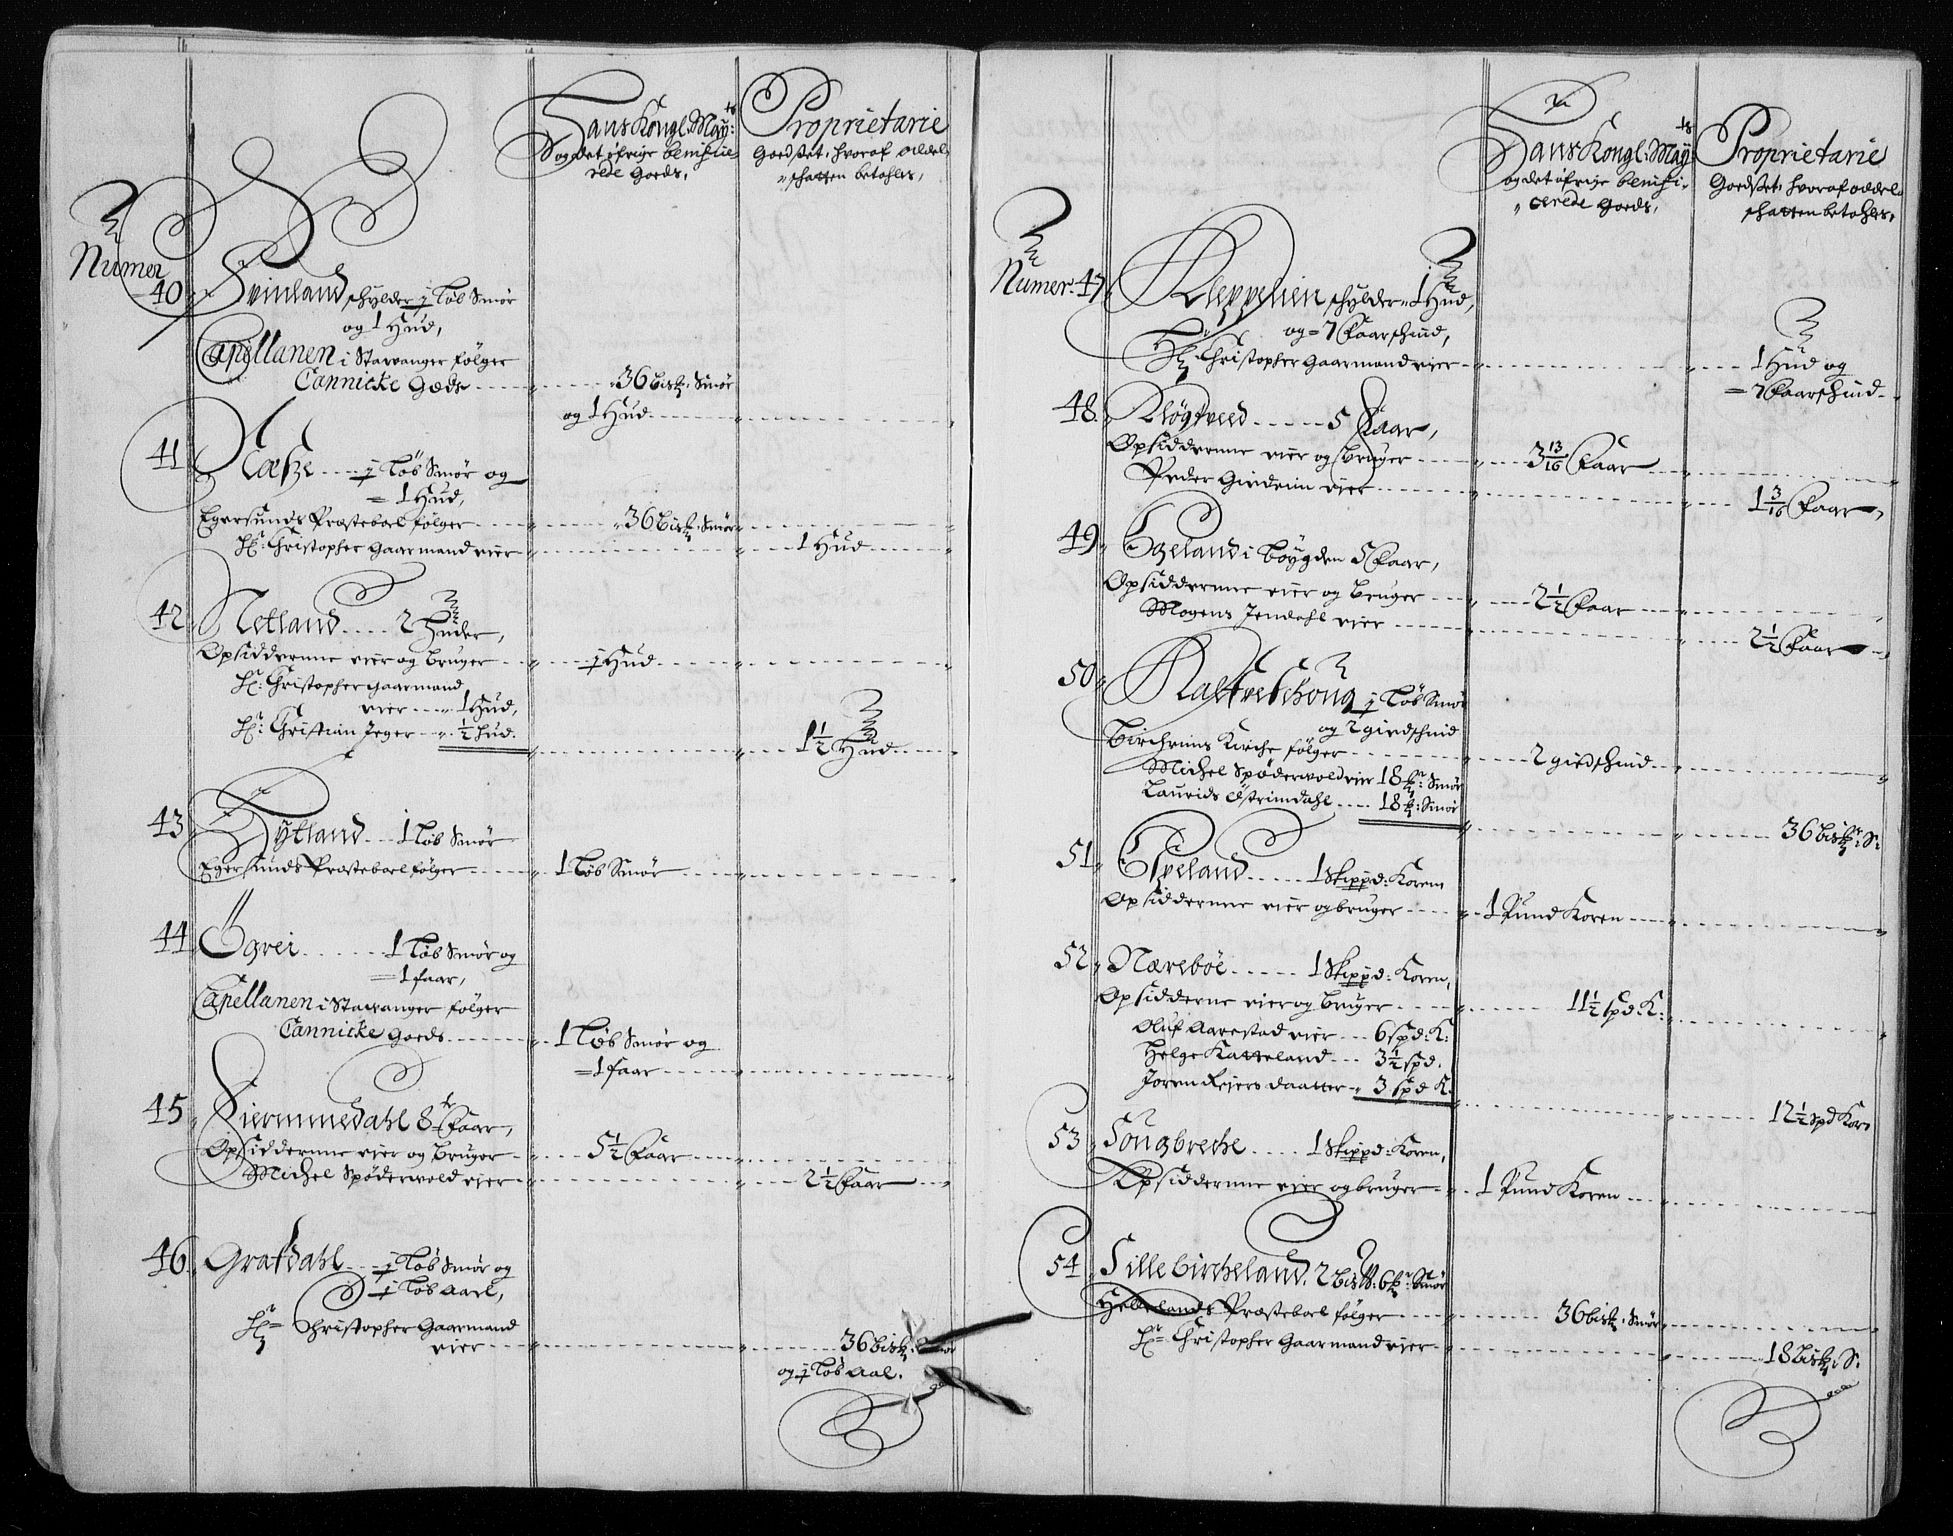 Hans Kongl: Mayts:
og det öfrige benificie-
rede Goeds,
Proprietarie
Goedset, hvoraf oddel
schatten betahles,
Numer
40 Svinland schylder ½ Løb Smør
og 1 Hud,
Capellanen i Stavanger følger
Cannicke Gods 36 bisk: Smør
og 1 Hud
41 ½ Løb Smør og
1 Hud,
Egersunds Præsteboel følger 36 bisk: Smør
Hr: Christopher Gaarmand eier 1 Hud
42 Netland 2 Huder,
Opsidderne eier og bruger ½ Hud
Hr: Christopher Gaarmand
eier 1 Hud,
Hr: Christian Jeger ½ Hud.
1½ Hud
43 Hytland 1 Løb Smør
Egersunds Præsteboel følger 1 Løb Smør
44 Ogrei 1 Løb Smør og
1 faar,
Capellanen i Stavanger følger
Cannicke Goeds 1 Løb Smør og
1 faar
45 Liermmedahl 8 Faar,
Opsidderne eier og Bruger 5½ Faar
Michel Spøderwold eier 2½ Faar
46 Grafdahl ½ Løb Smør og
½ Løb Aael,
Hr= Christopher Gaarmand
eier 36 bisk: Smør
og ½ Løb Aal.
Hans Kongl: Mayts:
og det öfrige benifi-
cerede Goeds,
Proprietarie
Goedset, hvoraf oddel
schatten betahles,
Numer: 47 Kleppelien schylder 1 Hud,
og 7 Faarschind,
Hr: Christopher Gaarmand eier 1 Hud og
7 Faarschind
48 Kløgtveed 5 Faar,
Opsidderne eier og Bruger 3 13/16 Faar
Peder eier 1 3/16 Faar,
49 Egeland i bøygden 5 Faar,
Opsidderne eier og Bruger 2½ Faar
Mogens Jendahl eier 2½ Faar
50 ½ Løb Smør
og 2 giedschind
Birchrims Kirche følger 2 giedschind
Michel Spøderwold eier 18 mr: Smør
Laurids Østrimdahl 18 mr: Smør
36 bismr: S:
51 Espeland 1 Skippd: Koren
Opsidderne eier og bruger 1 Pund Koren
52 Nærebøe 1 Skippd: Koren,
Opsidderne eier og Bruger 11½ spd: K:
Oluf Aarestad eier 6 spd: K:
Helge Katteland 3½ spd.
Joren Reiers daatter 3 spd K.
12½ spd Kor:
53 Sougbreche 1 Skippd: Koren,
Opsidderne eier og bruger 1 Pund Koren
54 Lille bircheland. 2 bis: 6 mr: Smør
Hellelands Præsteboel følger 36 bisk: Smør
Hr= Christopher Gaarmand eier 18 bisk: S: